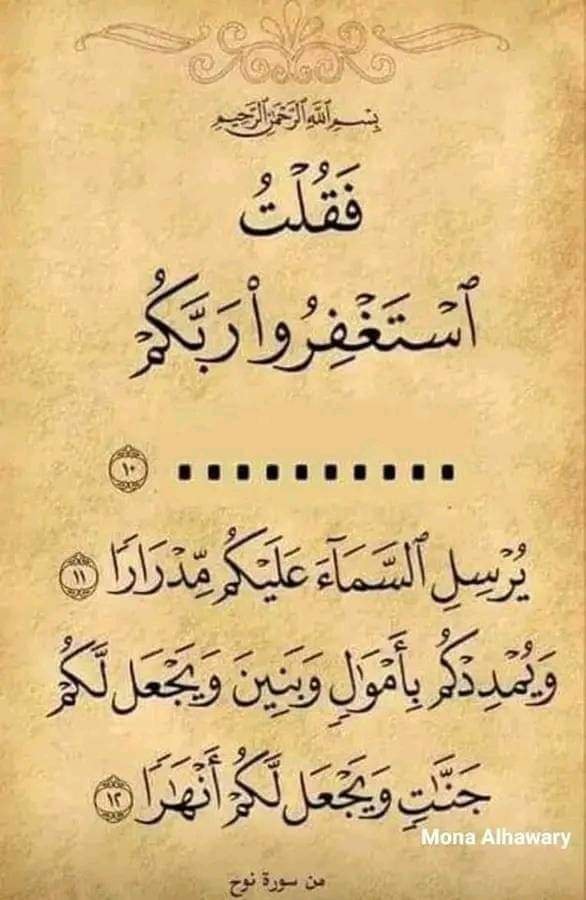 بِسْمِ ٱللَّهِ ٱلرَّحْمَٰنِ ٱلرَّحِيمِ
فَقُلْتُ
ٱسْتَغْفِرُوا۟ رَبَّكُمْ
.......... ١٠
يُرْسِلِ ٱلسَّمَآءَ عَلَيْكُم مِّدْرَارًا ١١
وَيُمْدِدْكُم بِأَمْوَٰلٍ وَبَنِينَ وَيَجْعَل لَّكُمْ
جَنَّٰتٍ وَيَجْعَل لَّكُمْ أَنْهَٰرًا ١٢
Mona Alhawary
من سورة نوح